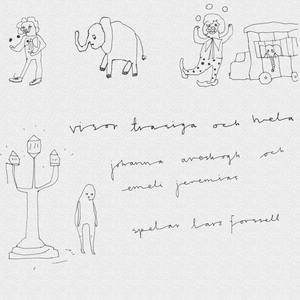 visor trasiga och hela
johanna areskogh och
emeli jeremias
spelar lars forssell